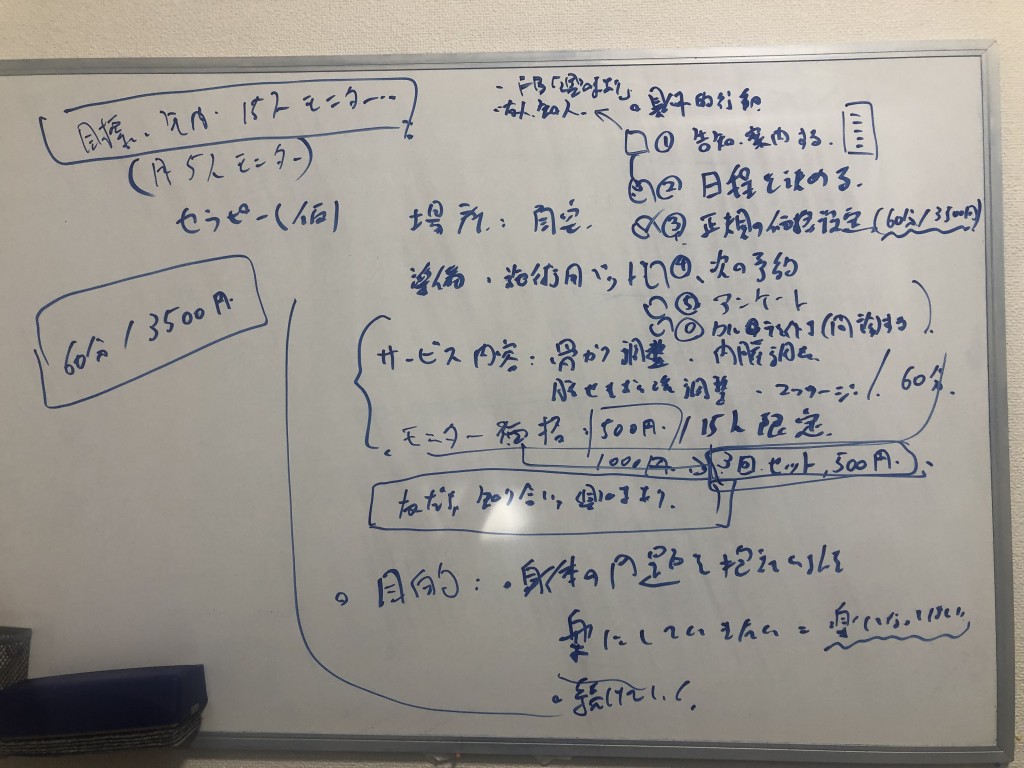 目標、年内・15人 モニター…
(月5人モニター)
セラピー(仮)
60分/3500円.
友人、知人.
具体的行動
① 告知・案内する.
② 日程を決める.
③ 正規の価格設定(60分/3500円)
④、次の予約
⑤ アンケート
場所: 自宅.
準備・施術用ベット
サービス内容: 骨かつ調整・内臓調
調整・マッサージ/60分.
モニター価格 500円/15人限定.
1000円 → 3回セット,500円.
友だち, 知り合い,
目的: ・身体の問題を抱えている
楽にしていきたい =
・続けていく.